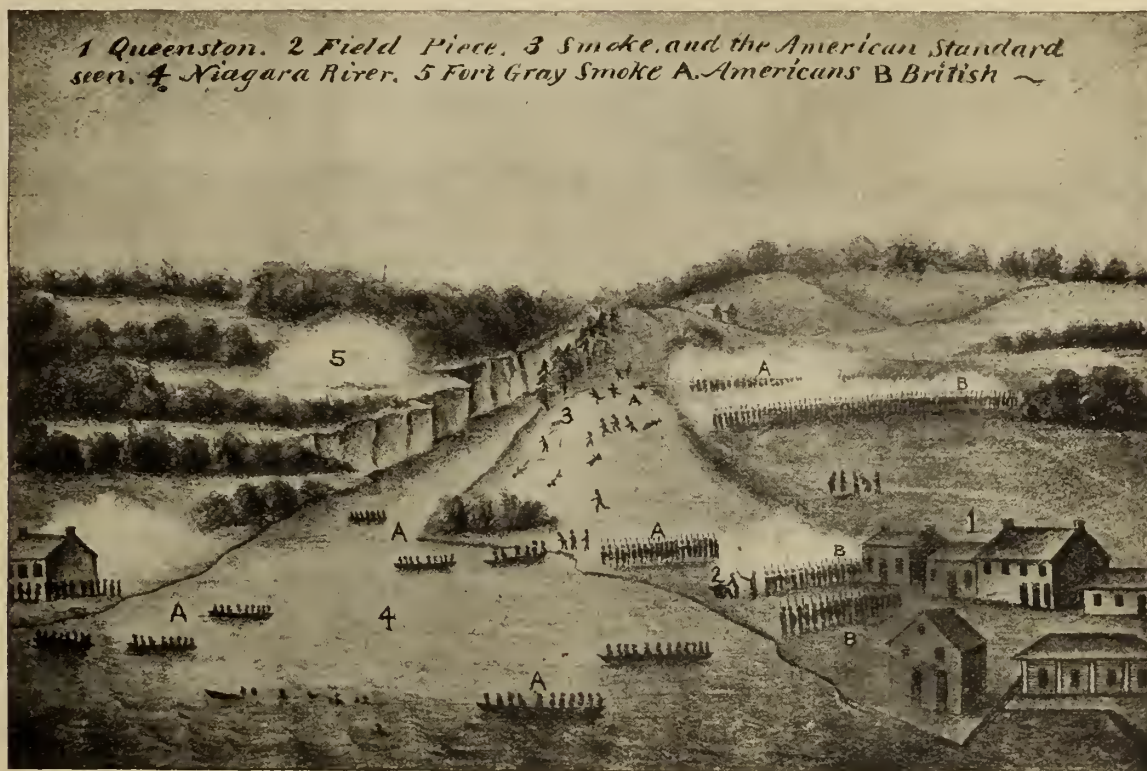 1 Queenston. 2 Field Piece. 3 Smoke. and the American Standard
seen. 4. Niagara River. 5 Fort Gray Smoke A. Americans B British ~
5
A
B
A
3
A
A
1
B
2
A
4
B
A